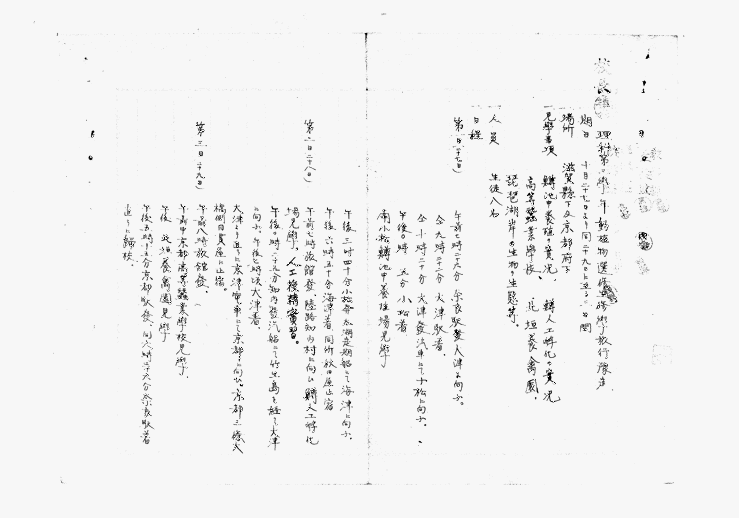 理科第一學年動植物選修生修學旅行豫定
期日 十月二十七日より同二十九日に至る 三日間
場所 滋賀縣下及京都府下
見學事項 鱒池中養殖ノ實況、鱒人工孵化ノ實況
高等蠶業學校、北垣養禽園、
琵琶湖岸の生物ノ生態等、
人員 生徒八名
日程
第一日(二十七日)
午前七時二十六分 奈良駅發 大津に向ふ。
仝九時二十二分 大津駅着、
仝十時二十分 大津發汽車にて小松に向ふ。
午後〇時 五分 小松着
南小松鱒池中養殖場見學
午後三時四十分小松發太湖定期船にて海津に向ふ。
午後六時五十分海津着 同所秋田屋止宿
第二日(二十八日)
午前七時旅館發 陸路知内村に向ひ鱒人工孵化
場見學、人工授精實習。
午後〇時二十五分知内發汽船にて竹生島を経て大津
に向ふ。午後七時頃大津着、
大津より直ちに京津電車にて京都に向ひ京都三條大
橋側日貫屋に止宿。
第三日(二十九日)
午前八時旅館發、
午前中京都高等蠶業學校見學、
午後 北垣養禽園見學
午後五時十五分京都駅發、同八時二十六分奈良駅着
直ちに歸校、